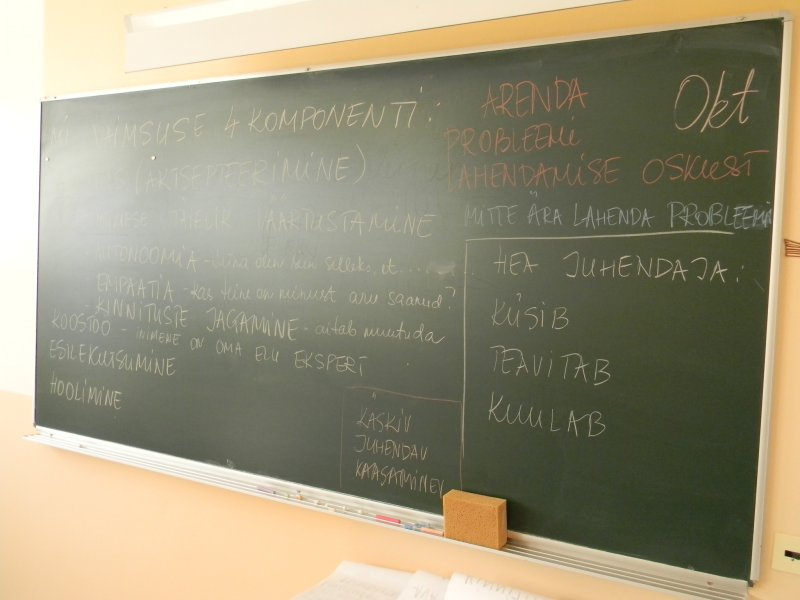 MI VAIMSUSE 4 KOMPONENTI:
(AKTSEPTEERIMINE)
INIMESE TÄIELIK VÄÄRTUSTAMINE
AUTONOOMIA - mina olen siin selleks, et.......
EMPAATIA - kas teine on minust aru saanud?
- KINNITUSTE JAGAMINE - aitab muutuda
KOOSTÖÖ - INIMENE ON OMA ELU EKSPERT
ESILEKUTSUMINE
HOOLIMINE
KÄSKIV
JUHENDAV
KAASAMINEV
ARENDA
PROBLEEMI
LAHENDAMISE OSKUST
Okt
MITTE ÄRA LAHENDA PROBLEEMI
HEA JUHENDAJA:
KÜSIB
TEAVITAB
KUULAB